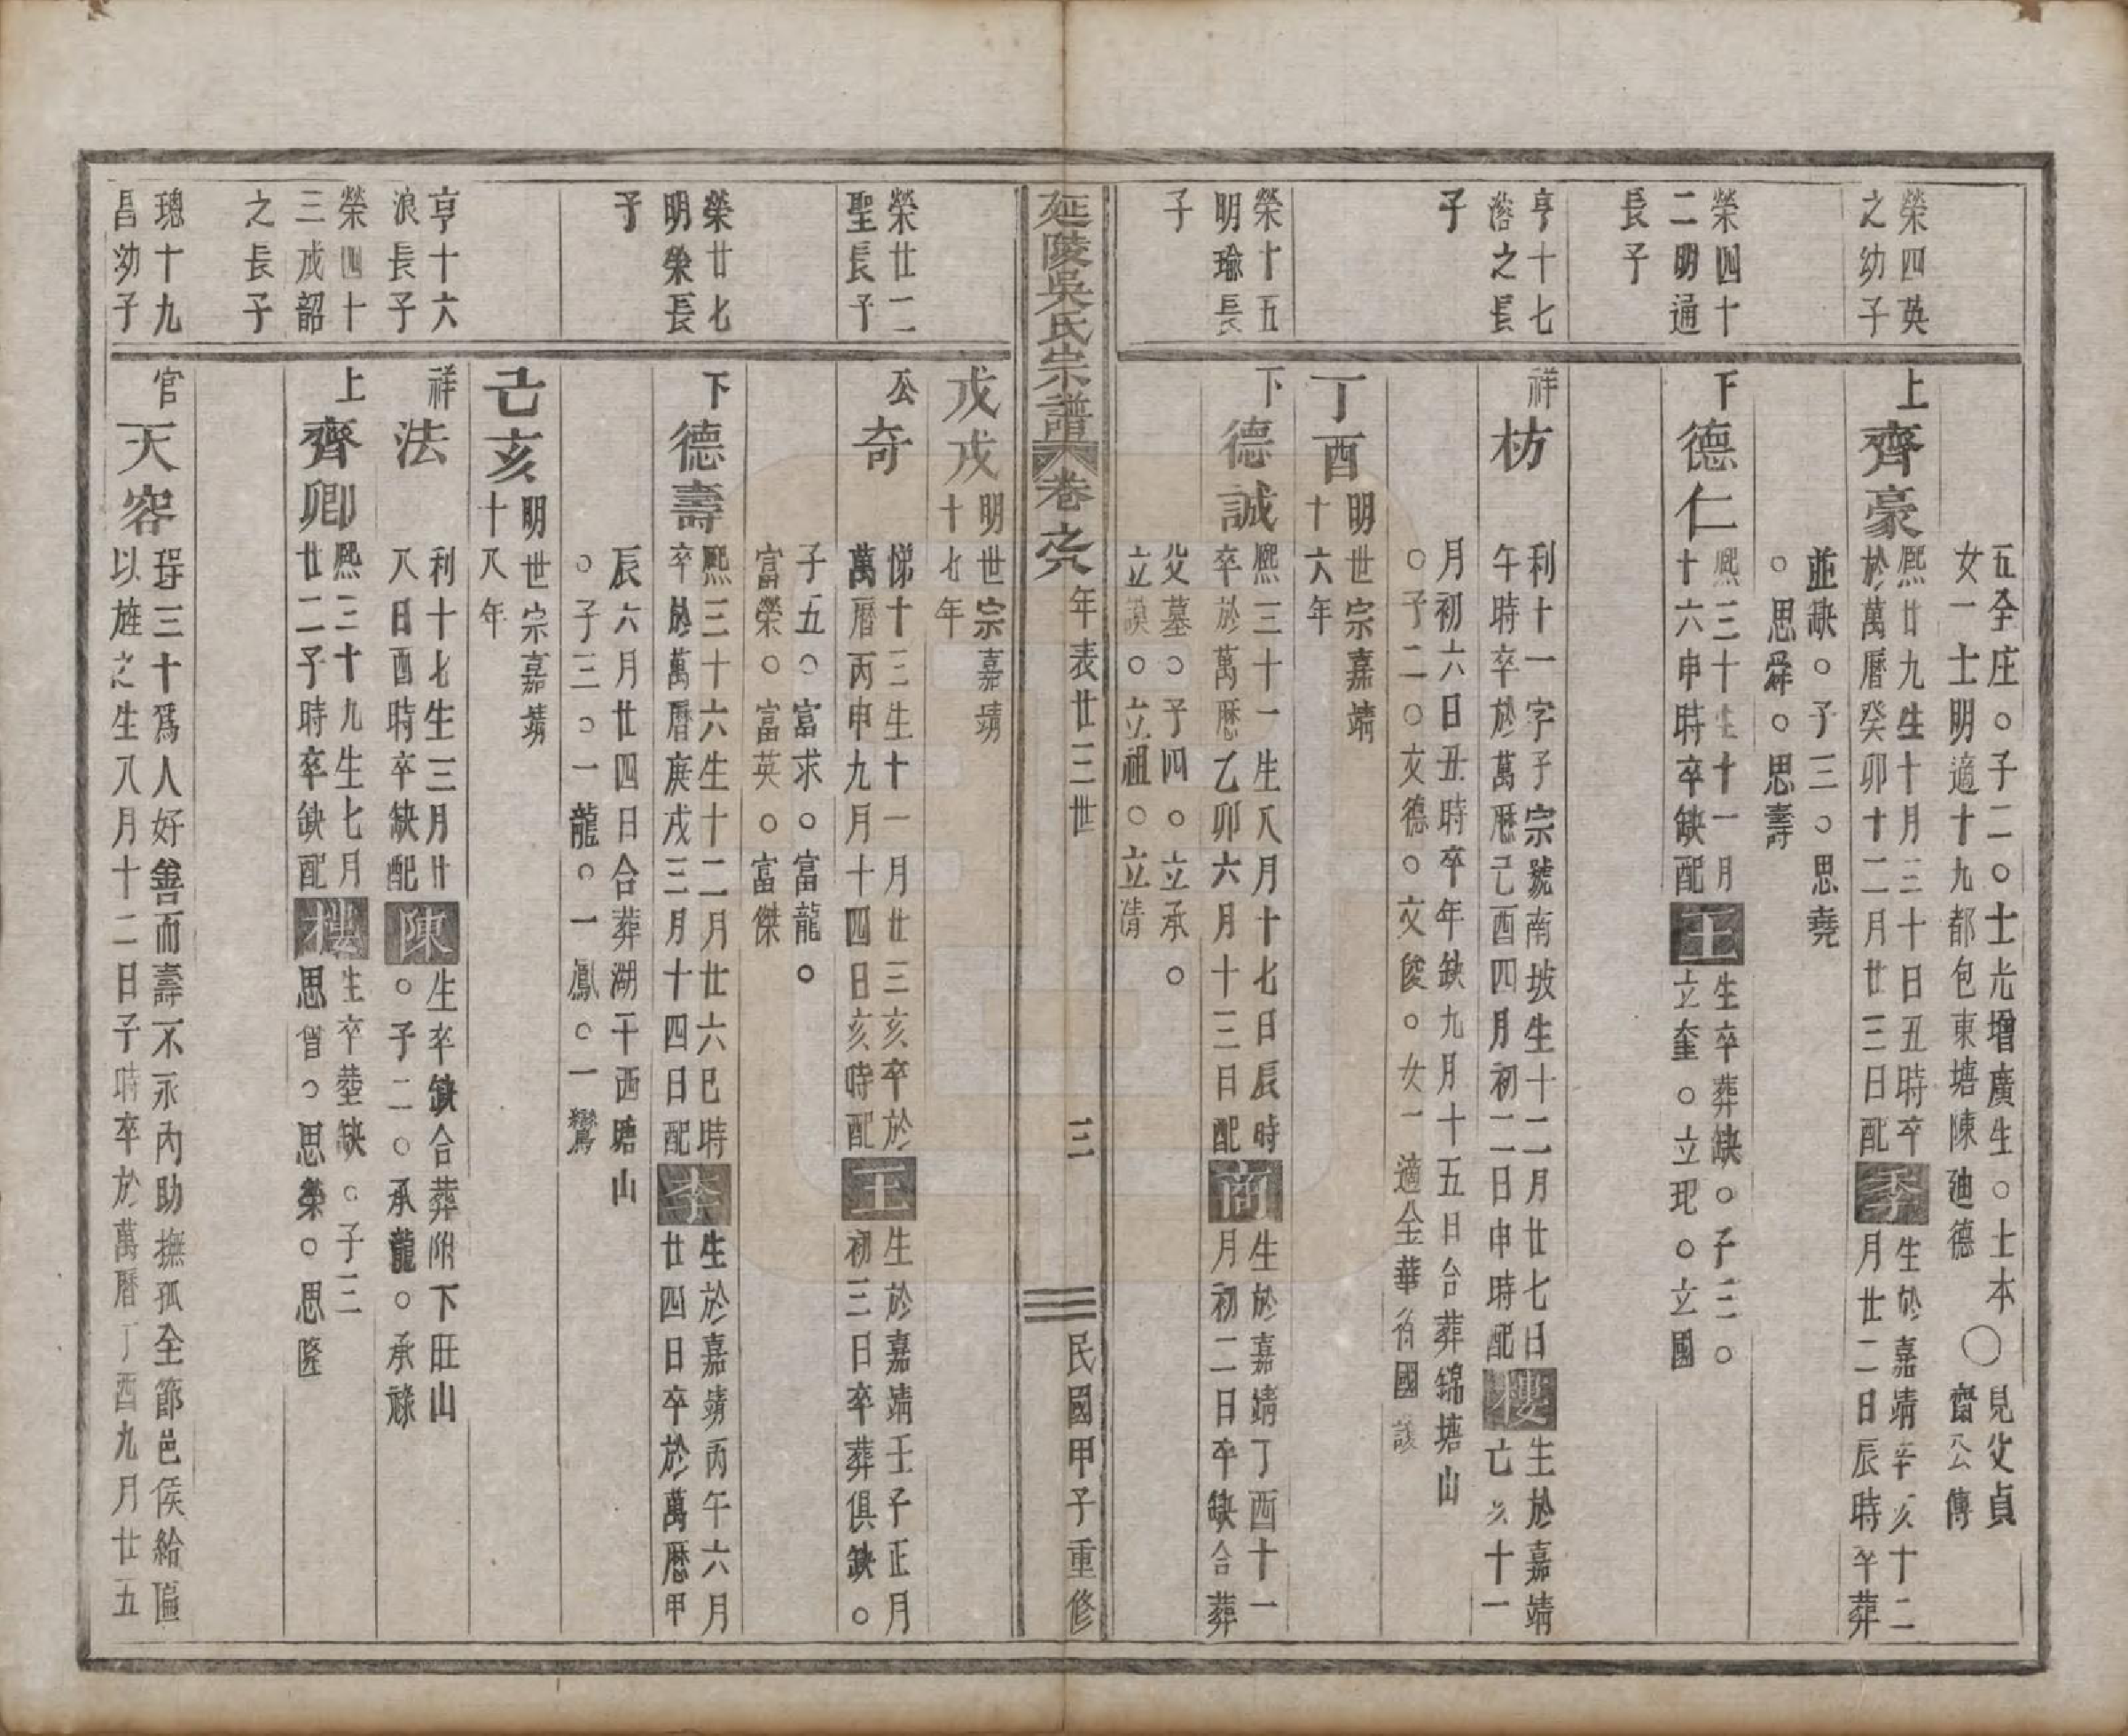 五全庄○子二○士光增廣生○士本○見父貞
女一士明適十九都包東塘陳迪德　齋公傳
榮四英
之幼子
上
齊豪
熙廿九生十月三十日丑時卒
於萬曆癸卯十二月廿三日配
李
生於嘉靖辛亥十二
月廿二日辰時卒葬
並缺○子三○思堯
○思舜○思壽
榮四十
二明通
長子
下
德仁
熙三十生十一月
十六申時卒缺配
王
生卒葬缺○子三○
立奎○立玘○立國
亨十七
溶之長
子
祥
枋
利十一字子宗號南坡生十二月廿七日
午時卒於萬歷己酉四月初二日申時配
樓
生於嘉靖
亡亥十一
月初六日丑時卒年缺九月十五日合葬錦塘山
○子二○文德○文俊○女一適金華俞國謨
丁酉
明世宗嘉靖
十六年
榮十五
明瑜長
子
下
德誠
熙三十一生八月十七日辰時
卒於萬歷乙卯六月十三日配
商
生於嘉靖丁酉十一
月初二日卒缺合葬
父墓○子四○立承○
立謨○立祖○立清
延陵吳氏宗譜　卷之六　年表廿三世　三　民國甲子重修
戊戌
明世宗嘉靖
十七年
榮廿二
聖長子
公
奇
悌十三生十一月廿三亥卒於
萬曆丙申九月十四日亥時配
王
生於嘉靖壬子正月
初三日卒葬俱缺○
子五○富求○富龍○
富榮○富英○富傑
榮廿七
明榮長
子
下
德壽
熙三十六生十二月廿六巳時
卒於萬曆庚戌三月十四日配
李
生於嘉靖丙午六月
廿四日卒於萬歷甲
辰六月廿四日合葬湖干西塘山
○子三○一龍○一鳳○一鸞
己亥
明世宗嘉靖
十八年
亨十六
浪長子
祥
法
利十七生三月廿
八日酉時卒缺配
陳
生卒缺合葬附下旺山
○子二○承龍○承祿
榮四十
三戒韶
之長子
上
齊卿
熙三十九生七月
廿二子時卒缺配
樓
生卒塟缺○子三
思晉○思榮○思隆
璁十九
昌幼子
官
天容
珵三十爲人好善而壽不永內助撫孤全節邑侯給匾
以旌之生八月十二日子時卒於萬曆丁酉九月廿五